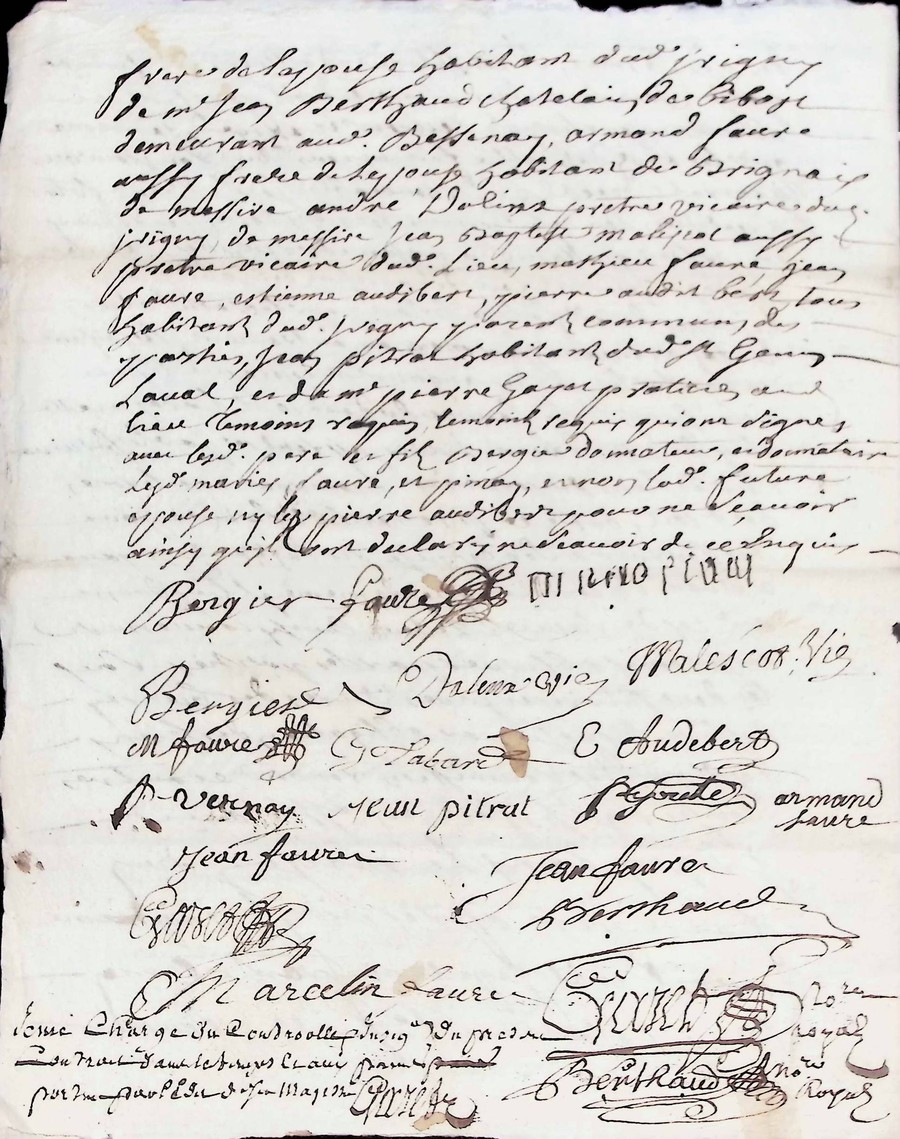 frere de lespouse habitant dud. jrigny
de me. Jean Berthaud chatelain de bibost
demeurant aud. Bessenay, armand faure
aussy frere de lespouse habitant de Brignais
de messire andré Dalenz pretre vicaire dud.
jrigny, de messire Jean Baptiste malescot aussy
pretre vicaire dud. Lieu, mathieu faure, jean
faure, estienne audibert, pierre audibert, tous
habitant dud. jrigny parent commun des
parties, Jean pitrat habitant dud. st Genis
Laval, et de me. pierre Goyet praticien aud
lieu Temoins requis qui ont signes
avec lesd. pere et fils Bergier donnateur, et donnataire
lesd. maries, faure, et pinay, et non lad. future
epouse ny led. pierre audibert pour ne scavoir
ainsy quils ont declarés ne scavoir de ce Enquis
Bergier faure
Bergier Dalenz vic Malescot Vic
M faure E Audebert
P. Vernay Jean pitrat armand faure
Jean faure Jean faure
Berthaud
Marcelin faure
Nore. royal
Contract dans le temps et aux peines
porteés par l'Edit de Sa Majesté
Berthaud Nore. Royal